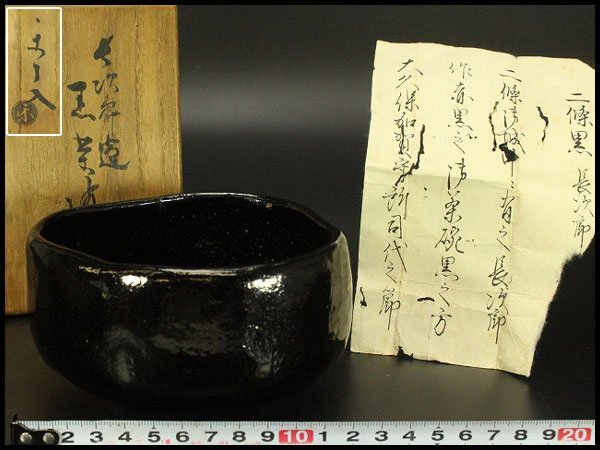 二條黒 長次郎
二條御城ニ有之長次郎
作赤黒之御茶碗黒之方
大久保加賀守諸司代之節
長次郎造
黒茶碗
了入
2 3 4 5 6 7 8 9 10 1 2 3 4 5 6 7 8 9 20